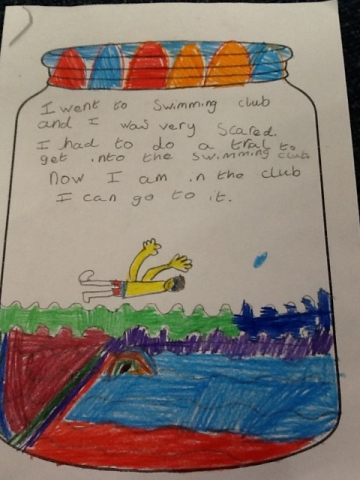 I went to Swimming club
and I was very Scared.
I had to do a trial to
get into the swimming club
Now I am in the club
I can go to it.